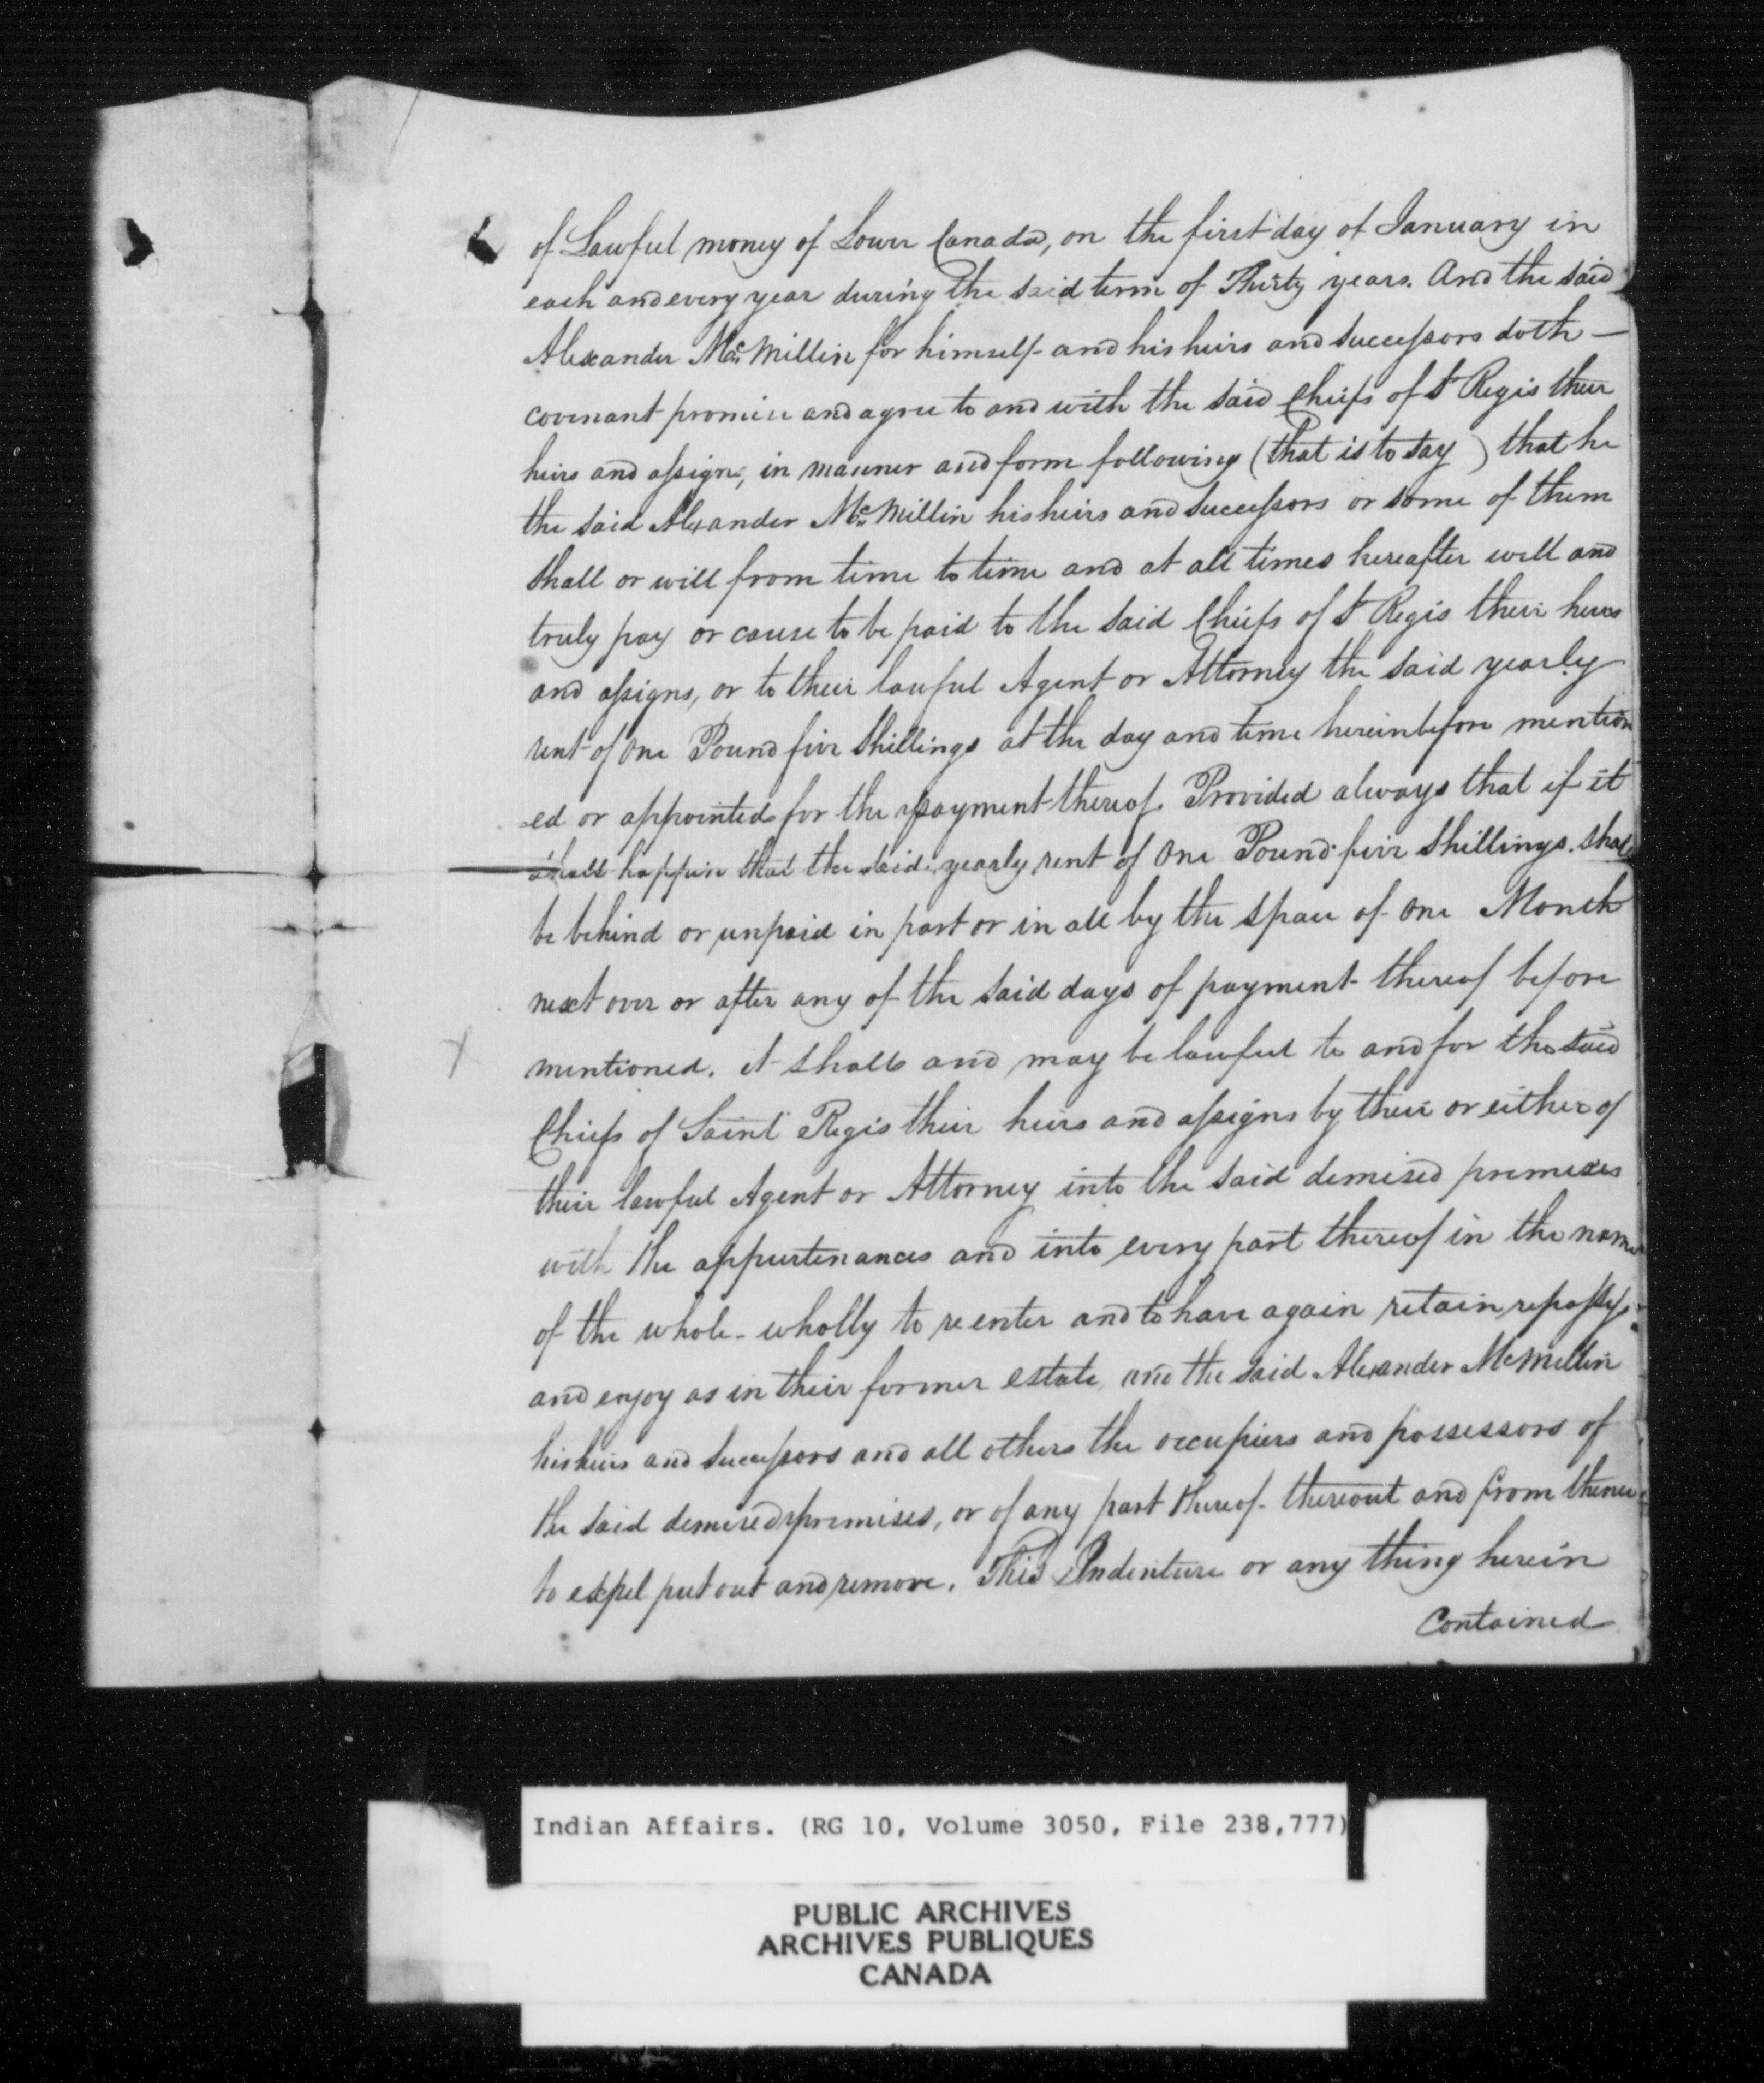 of Lawful money of Lower Canada, on the first day of January in
each and every year during the said term of Thirty years. And the said
Alexander McMillin for himself and his heirs and successors doth —
covenant promise and agree to and with the said Chiefs of St Regis their
heirs and assigns, in manner and form following (that is to say) that he
the said Alexander McMillin his heirs and successors or some of them
shall or will from time to time and at all times hereafter well and
truly pay or cause to be paid to the said Chiefs of St Regis their heirs
and assigns, or to their lawful Agent or Attorney the said yearly
rent of One Pound five Shillings at the day and time hereinbefore mention
-ed or appointed for the payment thereof. Provided always that if it
shall happen that the said yearly rent of One Pound five Shillings. shall
be behind or unpaid in part or in all by the space of One Month
next over or after any of the said days of payment thereof before
mentioned. it shall and may be lawful to and for the said
Chiefs of Saint Regis their heirs and assigns by their or either of
their lawful Agent or Attorney into the said demised premises
with the appurtenances and into every part thereof in the name
of the whole - wholly to reenter and to have again retain repossess
and enjoy as in their former estate, and the said Alexander McMillin
his heirs and successors and all others the occupiers and possessors of
the said demised premises, or of any part thereof - thereout and from thence
to expel put out and remove. This Indenture or any thing herein
Contained
Indian Affairs. (RG 10, Volume 3050, File 238,777)
PUBLIC ARCHIVES
ARCHIVES PUBLIQUES
CANADA